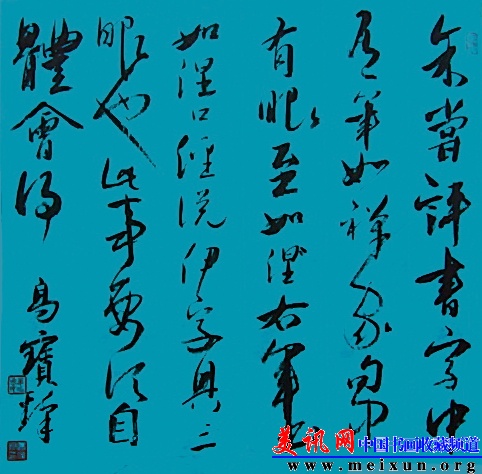 余嘗評書字中
有筆如禪家句中
有眼至如涅右軍書
如涅口經説伊字具三
眼也此事要須自
體會得
高寶
美讯网 中国书画收藏频道
www.meixun.org